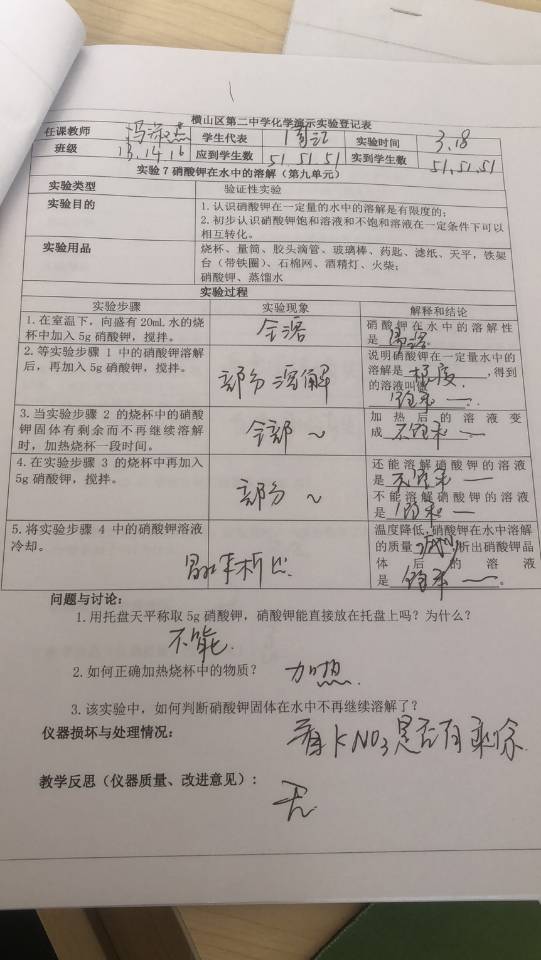 横山区第二中学化学演示实验登记表
任课教师 学生代表 实验时间 3.18
班级 13.14.16 应到学生数 51 51 51 实到学生数 51.51.51
实验 7 硝酸钾在水中的溶解（第九单元）
实验类型 验证性实验
实验目的 1.认识硝酸钾在一定量的水中的溶解是有限度的；
2.初步认识硝酸钾饱和溶液和不饱和溶液在一定条件下可以
相互转化。
实验用品 烧杯、量筒、胶头滴管、玻璃棒、药匙、滤纸、天平，铁架
台（带铁圈）、石棉网、酒精灯、火柴；
硝酸钾、蒸馏水
实验过程
实验步骤 实验现象 解释和结论
1.在室温下，向盛有20mL 水的烧
杯中加入 5g 硝酸钾，搅拌。
全溶
硝酸钾在水中的溶解性
是 易溶。
2.等实验步骤 1 中的硝酸钾溶解
后，再加入 5g 硝酸钾，搅拌。
部分溶解
说明硝酸钾在一定量水中的
溶解是 ，得到
的溶液叫做
饱和 一.
3.当实验步骤 2 的烧杯中的硝酸
钾固体有剩余而不再继续溶解
时，加热烧杯一段时间。
全部 ~
加热后的溶液变
成 不饱和 一
4.在实验步骤 3 的烧杯中再加入
5g 硝酸钾，搅拌。
部分 ~
还能溶解硝酸钾的溶液
是 不饱和 一
不能溶解硝酸钾的溶液
是 饱和 一
5.将实验步骤 4 中的硝酸钾溶液
冷却。
晶体析出.
温度降低，硝酸钾在水中溶解
的质量 减少，析出硝酸钾晶
体后的溶液
是 饱和 一。
问题与讨论：
1.用托盘天平称取 5g 硝酸钾，硝酸钾能直接放在托盘上吗？为什么？
不能.
2.如何正确加热烧杯中的物质？ 加热.
3.该实验中，如何判断硝酸钾固体在水中不再继续溶解了？
仪器损坏与处理情况：
看KNO3是否有剩余.
教学反思（仪器质量、改进意见）：
无.